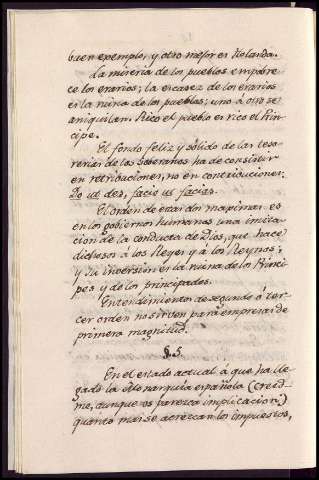 buen exemplo, y otro mejor es Holanda.
La miseria de los pueblos empobre
ce los erarios; la escasez de los erarios
es la ruina de los pueblos; uno a otro se
aniquilan. Rico el pueblo es rico el Prin
cipe.
El fondo feliz y sólido de las teso-
rerias de los Soberanos ha de consistir
en retribuciones, no en contribuciones.
Do ut des, facio ut facias.
El orden de estas dos maximas es
en los gobiernos humanos una imita
cion de la conducta de Dios, que hace
dichosos á los Reyes y á los Reynos;
y su inversion es la ruina de los Princi
pes y de los principados.
Entendimientos de segundo ó ter-
cer orden no sirven para empresas de
primera magnitud.
§. 5.
En el estado actual á que ha lle
gado la Monarquia española (creed
me, aunque os parezca implicacion)
quanto mas se acrezcan los impuestos,